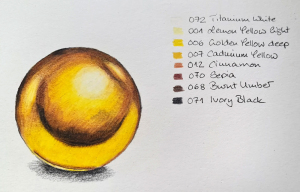 072 Titanium White
001 Lemon Yellow light
006 Golden Yellow deep
007 Cadmium Yellow
012 Cinnamon
070 Sepia
068 Burnt Umber
071 Ivory Black